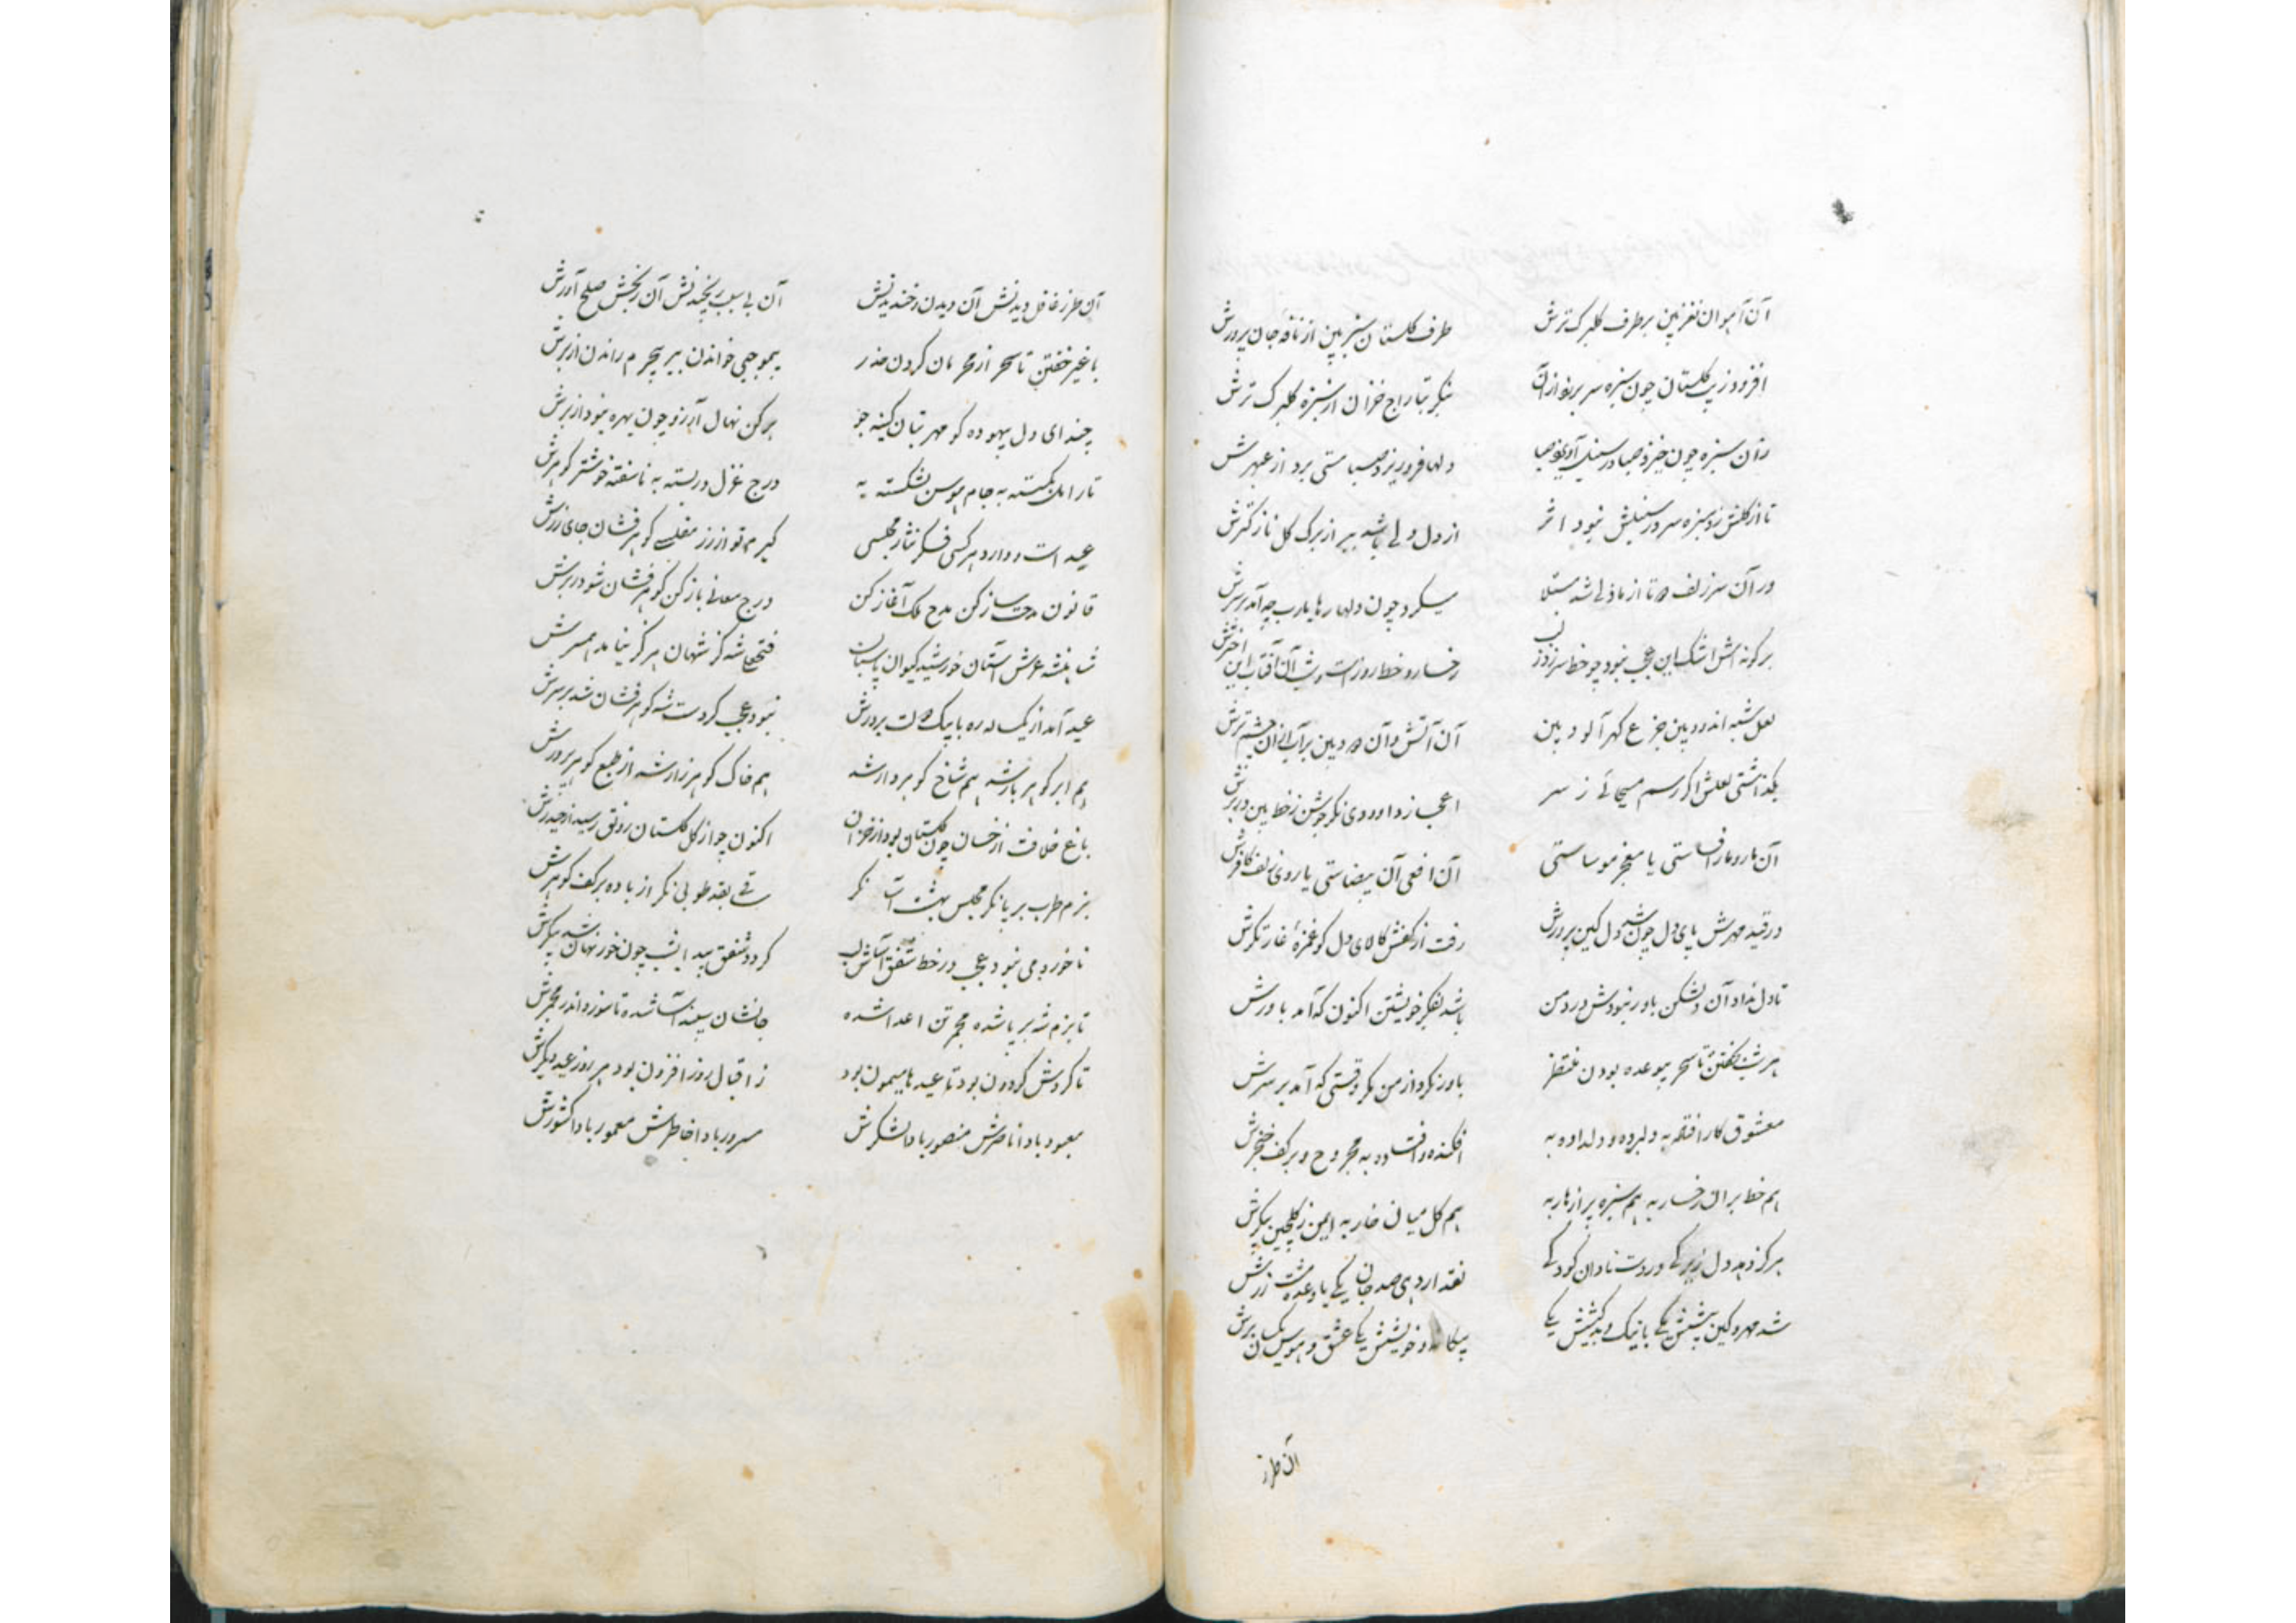 آن آهوان نغز بین بر طرف گلبرک ترش
طرف گلستان سبز بین از نافه جان پرورش
افزود زیب گلستان چون سبزه سر برزد از آن
بنگر بتاراج خزان از سبزه گلبرک ترش
زان سبزه چون خیزد صبا در سنبل آویزد صبا
دلها فرو ریزد صبا مستی برد از عبهرش
تا از گلش زد سبزه سر در سنبلش نبود اثر
از دل ولی باشد ببر از برک گل نازکترش
در آن سر زلف دوتا از ماذلی شد مبتلا
میکرد چون دلها رها یارب چه آمد بر سرش
بر گونه اش اشک این عجب نبود چو خط سر زد ز لب
رخسار و خط روز است و شب آن آفتاب این اخترش
لعل شبه اندود بین جزع گهر آلود بین
آن آتش و آن دود بین بر آب از آن چشم ترش
بگذاشتی لعلش اگر رسم مسیحائی ز سر
اعجاز داوودی نگر جوشن ز خط بین در برش
آن مار و مار افساستی یا معجز موساستی
آن افعی آن بیضاستی یا روی زلف کافرش
در قید مهرش پای دل چون شد دل کین پرورش
رفت از کفش کالای دل کو غمزهٔ غارتگرش
تا دل نداد آن دلشکن باور نبودش درد من
باشد بفکر خویشتن اکنون که آمد باورش
هر شب نخفتن تا سحر بیوعده بودن منتظر
باور نکرد از من مگر وقتی که آمد بر سرش
معشوق کار افتاده به دلبرده و دلداده به
افکنده و افتاده به مجروح و بر کف خنجرش
هم خط بر آن رخسار به هم سبزه پر ازهار به
هم گل میان خار به ایمن ز گلچین پیکرش
هرگز ندهد دل زیرکی در دست نادان کودکی
نقد ار دهی صد جان یکی با وعده مشت زرش
شد مهر و کین پیشش یکی با نیک و بد کیشش یکی
بیگانه و خویشش یکی عشق و هوس یکسان برش
آن طرز
آن طرز غافل دیدنش آن دیدن و خندیدنش
آن بی سبب رنجیدنش آن رنجش صلح آورش
با غیر خفتن تا سحر از محرمان کردن حذر
بیموجبی خواندن ببر بیجرم راندن از برش
چند ای دل بیهوده گو مهر بتان کینه جو
برکن نهال آرزو چون بهره نبود از برش
تار امل بگسسته به جام هوس بشکسته به
درج غزل در بسته به ناسفته خوشتر گوهرش
عید است و دارد هر کسی فکر نثار مجلسی
گیرم تو از زر مفلسی گوهر فشان جای زرش
قانون مدحت ساز کن مدح ملک آغاز کن
درج معانی باز کن گوهر فشان شو در برش
شاهنشه عرش آستان خورشید کیوان پاسبان
فتحعلی شه کز شهان هرگز نیامد همسرش
عید آمد از یکساله ره با پیک دولت بر درش
نبود عجب کز دست شه گوهر فشان شد بر سرش
هم ابر گوهر بار شد هم شاخ گوهر دار شد
هم خاک گوهر زار شد از طبع گوهر پرورش
باغ خلافت از خسان چون گلستان بود از خزان
اکنون چو از گل گلستان رونق رسید از حیدرش
بزم طرب بر پا نگر مجلس بهشت آسا نگر
ساقی بقد طوبی نگر از باده بر کف کوثرش
تا خورد می نبود عجب در خط شفق آساش لب
گردد شفق پیدا بشب چون خور نهان شد پیکرش
تا بزم شه بر پا شده مجمر تن اعدا شده
جانشان سپند آسا شده تا سوزد اندر مجمرش
تا گردش گردون بود تا عیدها میمون بود
ز اقبال روز افزون بود هر روز عید دیگرش
معبود بادا ناصرش منصور بادا لشگرش
مسرور بادا خاطرش معمور بادا کشورش